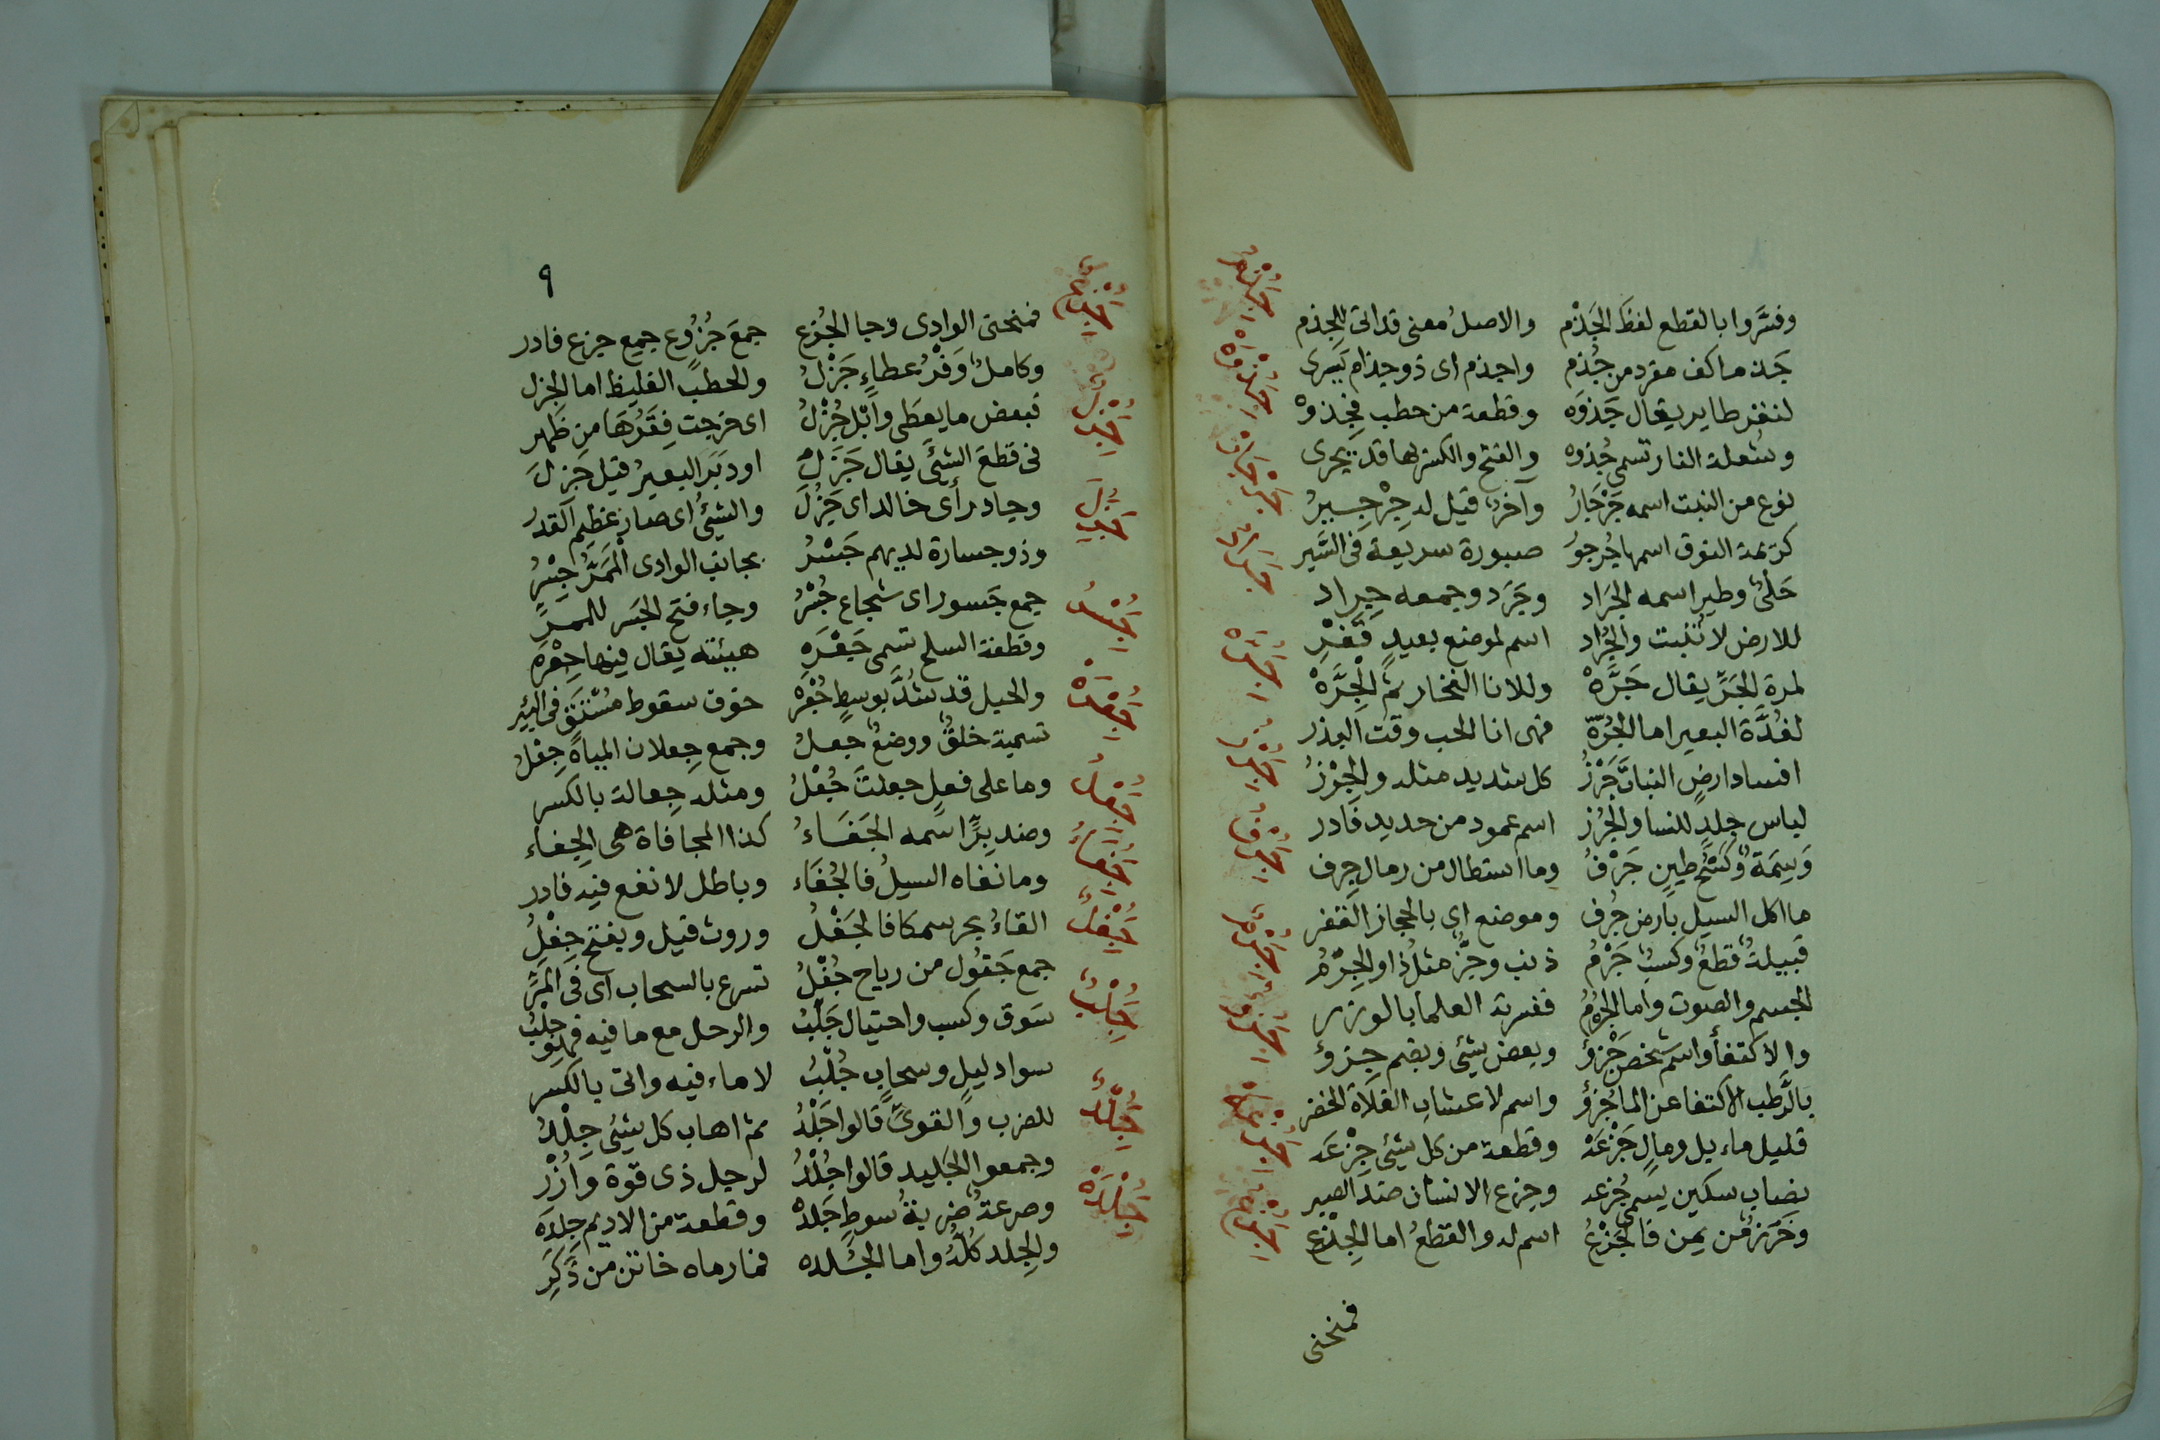 وفسَّروا بالقطع لفظَ الجَذْم والاصلُ معنى قد اتى للجِذم
جَذماكف مفرد من جُذم واجذم اى ذوجذام يَبرى
لنفر طاير يقال جَذوَه وقطعة من حطب فجِذوهْ
وشعلة النار تسمى جُذوه والفتح والكسر بها قد يجرى
نوع من النبت اسمه جَرْجَارُ وآخرٌ قيل له جِرْجِيرُ
كريمة النوق اسمها جُرجورُ صبورة سريعة فى السَّير
حَلْىٌ وطير اسمه الجَراد وجَرَد وجمعه جِرِاد
للارض لا تنبت والجُراد اسم لموضع بعيدٍ قَفْرِ
لمرة الجَرِّ يقال جَرَّهْ وللانا الفخار ثم الجِرَّهْ
لغُدَّة البعير اما الجُرّه فهى انا الحب وقت البذر
افساد ارض النبات جَرْزُ كل شديد مثله والجِرْزُ
لباس جلدٍ للنسا والجُرز اسم عمود من حديد فادر
وَسِمَة وكَسْحُ طين جَرْفُ وما استطال من رمال جِرف
ما اكل السيل بارض جُرف وموضع اى بالحجاز القفر
قبيلةٌ قطعٌ وكسبٌ جَرْمُ ذنب وجَزٌّ مثلُ ذا والجِرْمُ
الجسم والصوت واما الجُرْمُ ففسرته العلما بالوزر
والاكتفأ واسم شخص جَزؤُ وبعض شيئ وبضم جِزؤُ
بالرَّطب الاكتفا عن الما جُزؤُ واسم لاعشاب الفلاة الخضر
قليل ماء بل ومالٍ جَزْعَهْ وقطعة من كل شيئ جِزْعَه
نصاب سكين يسمى جُزعه وجزع الانسان ضد الصبر
وخَرَزٌ من يمن فالجَزْعُ اسم له والقطعُ اما الجِزْع
فمنحنى
اجَذْم
اجَذْوَه
اجَرْجَار
جَرَاد
اجَرَّه
اجَرْز
اجَرْف
اجَرْم
اجَزْؤ
اجَزْعَه
اجَزْع
٩
فمنحنى الوادى وجا الجُزع جمعَ جُزُوع جميع جزع فادر
وكاملٌ وَفْرُ عطاءٍ جَزْلُ والحطب الغليظ اما الجِزل
فبعض ما يعطى وابْل جُزْلُ اى خرجت فِقَرُهَا من ظهر
فى قطعَ الشيئَ يقال جَزَلَ او دَبَر البعيرُ قيل جَزِلَ
وجاد رأى خالد اى جَزُلَ والشيئُ اى صار عظيم القدر
وذو جسارة لديهم جَسْرُ بجانب الوادى الْمَمَرُّ جِسْرُ
جمع جَسور اى شجاع جُسْرُ وجاء فتح الجَسر للممرِّ
وقطعة السلح تسمى جَعْرَهِ هيئته يقال فيها جِعْرَهِ
والحبل قد شُدَّ بوسط جُعْرهْ خوف سقوط مُسْتَقٍ فى البير
تسمية خلقٌ ووضعٌ جعلُ وجمع جِعلان المياهَ جِعْلُ
وما على فعل جعلتَ جُعْلُ ومثله جِعالة بالكسر
وضد بِرٍّ اسمه الجَفَاءُ كذا المجافاة هى الجِفاء
وما نفاه السيلُ فالجُفَاء وباطل لا نفع فيه فادر
القاءُ بحر سمكا فالجَفْلُ وروث فيل وبفتح جِفْلُ
جمع جَفُول من رياح جُفْلُ تسرع بالسحاب اى فى المَرِّ
سَوق وكسب واحتيال جَلْبُ والرحل مع ما فيه فهو جِلْبُ
سواد ليلٍ وسحابٍ جُلْبُ لا ماء فيه واتى بالكسر
للضرب والقوىِّ قالوا جَلْدُ ثم اهاب كل شيئ جِلْدُ
وجمعوا الجَليد قالوا جُلْدُ لرجل ذى قوة وأزْر
وصرعةٌ ضربةُ سوطٍ جَلدهْ وقطعة من الاديم جِلدَه
والجِلد كُلُّه واما الجُلده فما رماه خاتن من ذَكَرِ
اجَزْع
اجَزْل
جَزَل
اجَسْر
اجَعْرَهْ
اجَعْل
اجَفَاء
اجَفْل
جَلْب
جَلْد
جَلْدَهْ